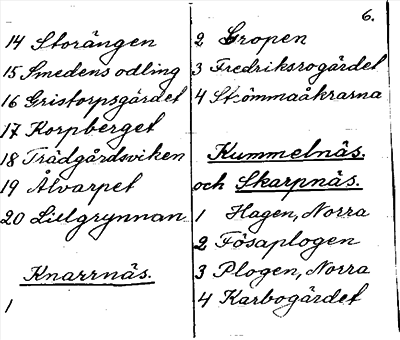 14 Storängen
15 Smedensodling
16 Gristorpsgärdet
17 Korpberget
18 Trädgårdsviken
19 Ålvarpet
20 Lillgrynnan
Knarrnäs.
1
6.
2 Gropen
3 Fredriksrogärdet
4 Strömmaåkrarna
Kummelnäs.
och Skarpnäs.
1 Hagen, Norra
2 Fösaplogen
3 Plogen, Norra
4 Karbogärdet